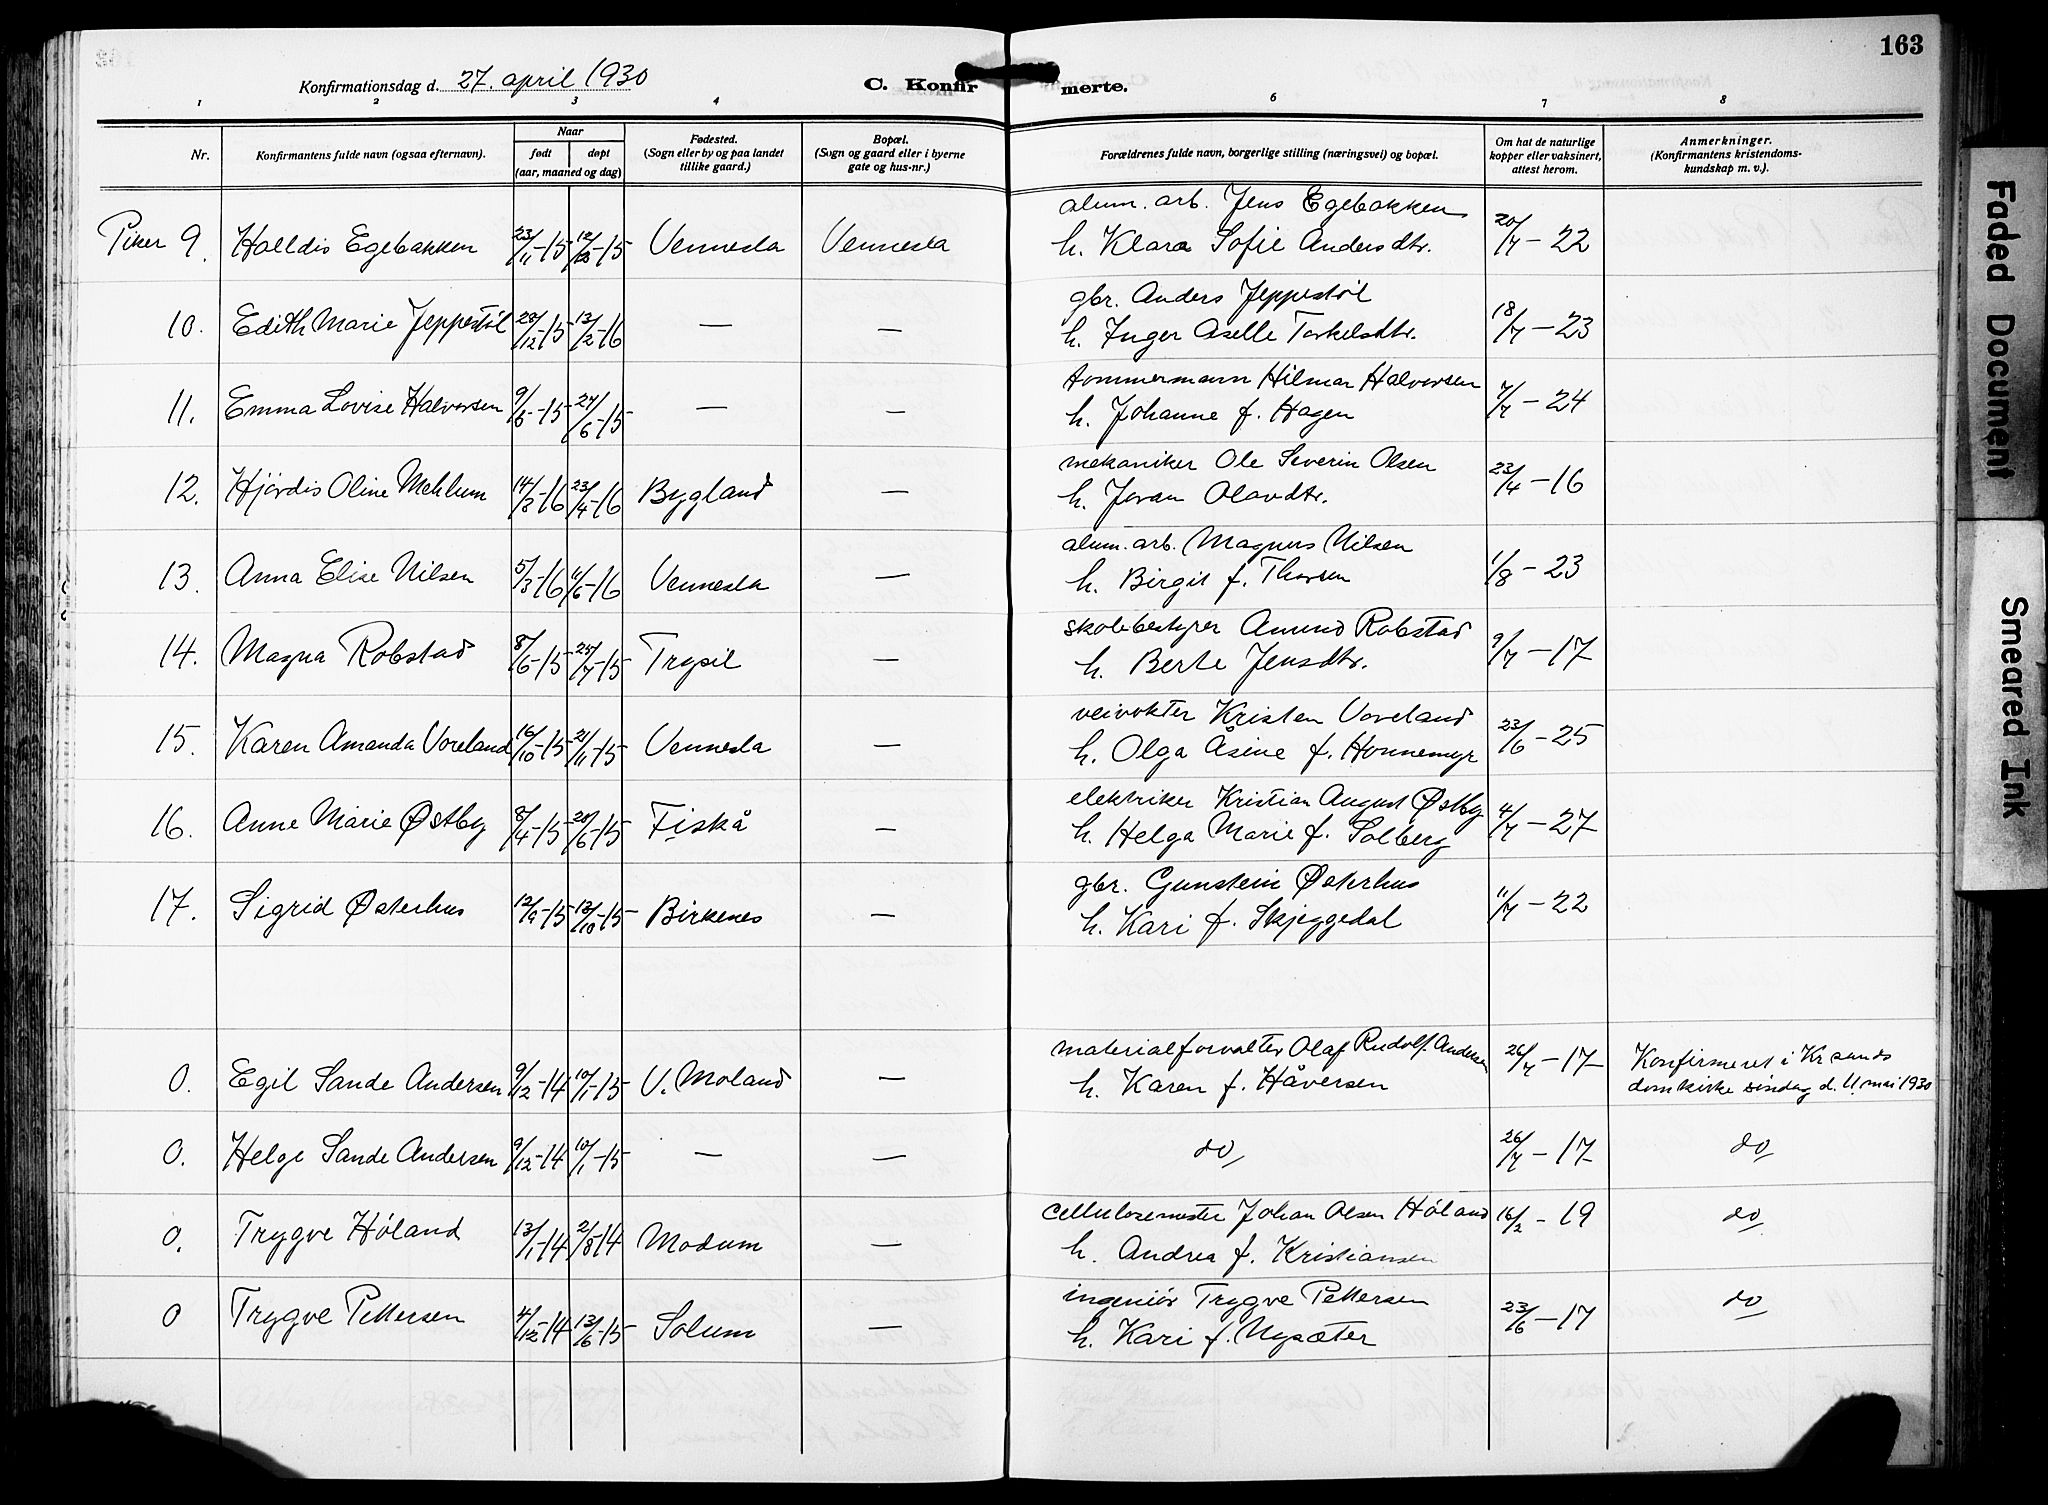 163
Konfirmationsdag d. 27. april 1930
C. Konfirmerte.
1 2 3 4 5 6 7 8
Nr. | Konfirmantens fulde navn (ogsaa efternavn). | Naar født | døpt (aar, maaned og dag) | Fødested. (Sogn eller by og paa landet tillike gaard.) | Bopæl. (Sogn og gaard eller i byerne gate og hus-nr.) | Forældrenes fulde navn, borgerlige stilling (næringsvei) og bopæl. | Om hat de naturlige kopper eller vaksinert, attest herom. | Anmerkninger. (Konfirmantens kristendomskundskap m. v.).
Piker 9. Halldis Egebakken 23/11-15 12/12-15 Vennesla Vennesla alum. arb. Jens Egebakken h. Klara Sofie Andersdtr. 20/7-22
10. Edith Marie Jeppestöl 23/12-15 13/2-16 — — gbr. Anders Jeppestöl h. Inger Aselle Torkelsdtr. 18/7-23
11. Emma Lovise Halvorsen 9/5-15 27/6-15 — — tømmermann Hilmar Halvorsen h. Johanne f. Hagen 7/7-24
12. Hjördis Oline Mehlum 14/3-16 23/4-16 Bygland — mekaniker Ole Severin Olsen h. Joran Olavdtr. 23/4-16
13. Anna Elise Nilsen 5/3-16 11/6-16 Vennesla — alum. arb. Magnus Nilsen h. Birgit f. Thorsen 1/8-23
14. Magna Robstad 8/6-15 25/7-15 Trysil — skolebestyrer Amund Robstad h. Berte Jensdtr. 9/7-17
15. Karen Amanda Voreland 16/10-15 21/11-15 Vennesla — veivokter Kristen Voreland h. Olga Åsine f. Honnemyr 23/6-25
16. Anne Marie Østby 8/4-15 20/6-15 Fiskå — elektriker Kristian August Østby h. Helga Marie f. Solberg 4/7-27
17. Sigrid Østerhus 12/9-15 13/10-15 Birkenes — gbr. Gunstein Østerhus h. Kari f. Skjeggedal 11/7-22
0. Egil Sande Andersen 9/12-14 10/1-15 V. Moland — materialforvalter Olaf Rudolf Andersen h. Karen f. Håversen 26/7-17 Konfirmeret i Kr sands domkirke søndag d. 11 mai 1930
0. Helge Sande Andersen 9/12-14 10/1-15 — — do 26/7-17 do
0. Trygve Höland 13/1-14 2/8-14 Modum — Cellulosemester Johan Olsen Höland h. Andrea f. Kristiansen 16/2-19 do
0 Trygve Pettersen 4/12-14 13/6-15 Solum — ingeniör Trygve Pettersen h. Kari f. Nysæter 23/6-17 do
Faded Document
Smeared Ink